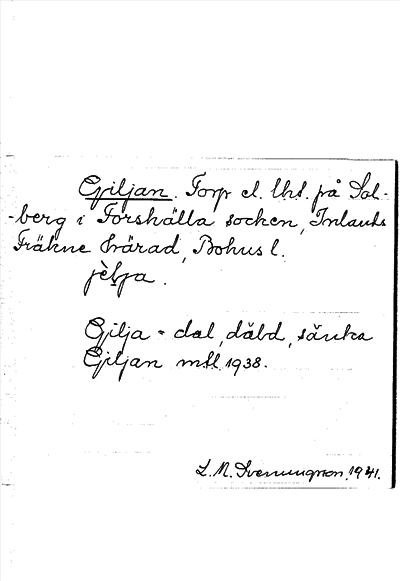 Giljan. Torp el. lht. på Sol-
-berg i Forshälla socken, Inlands
Fräkne härad, Bohus l.
Gilja = dal, däld, sänka
Giljan mtl. 1938.
L. M. Svenungsson. 1941.